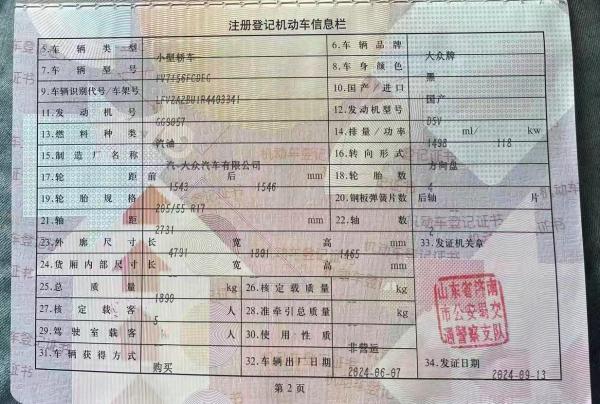 注册登记机动车信息栏
5.车辆类型 小型轿车 6.车辆品牌 大众牌
7.车辆型号 FV7156FCDEG 8.车身颜色 黑
9.车辆识别代号/车架号 LFV2A2BU1R4403341 10.国产/进口 国产
11.发动机号 GG9057 12.发动机型号 D5V
13.燃料种类 汽油 14.排量/功率 1498 ml/ 118 kw
15.制造厂名称 汽-大众汽车有限公司 16.转向形式 方向盘
17.轮距 前 1543 后 1546 mm 18.轮胎数 4
19.轮胎规格 205/55 R17 20.钢板弹簧片数 后轴 片
21.轴距 2731 mm 22.轴数 2
23.外廓尺寸 长 4791 宽 1801 高 1465 mm 33.发证机关章
24.货厢内部尺寸 长 宽 高 mm
25.总质量 1890 kg 26.核定载质量 kg
27.核定载客 5 人 28.准牵引总质量 kg
29.驾驶室载客 人 30.使用性质 非营运
31.车辆获得方式 购买 32.车辆出厂日期 2024-06-07 34.发证日期 2024-09-13
山东省济南
市公安局交
通警察支队
第2页